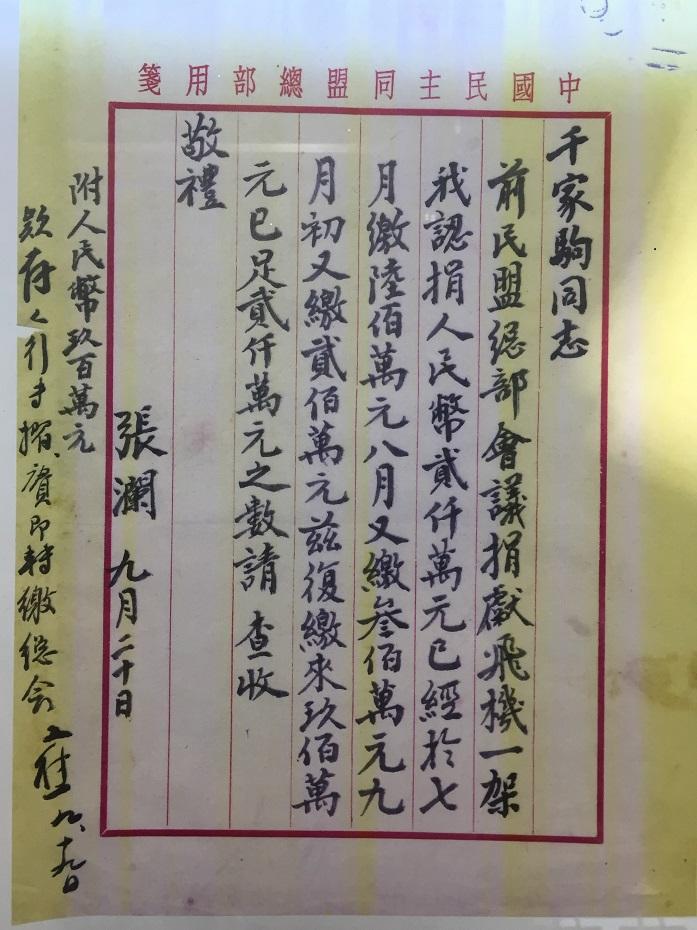 中國民主同盟總部用箋
千家駒同志
前民盟總部會議捐獻飛機一架
我認捐人民幣貳仟萬元已經於七
月繳陸佰萬元八月又繳叁佰萬元九
月初又繳貳佰萬元茲復繳來玖佰萬
元已足貳仟萬元之數請 查收
敬禮
張瀾 九月二十日
附人民幣玖百萬元
款存人行 即轉繳總會